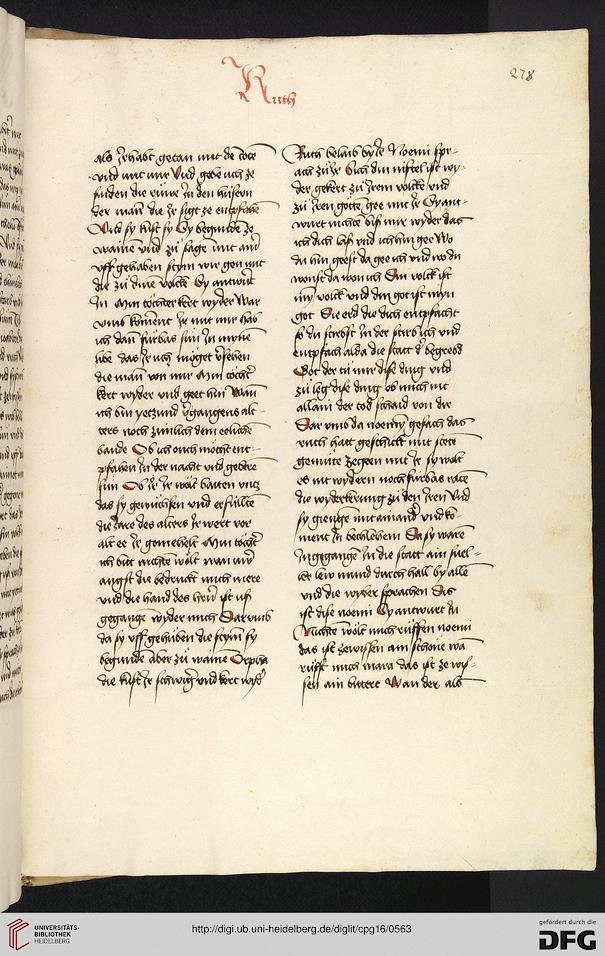 278
Ruth
als Ir habt getan mit de toten
vnd mit mir Vnd gebe uch ze
finden die ruwe Jn den husern
der man die Ir sigt ze entpfahen
Vnd sy kust sy Sy begunde ze
wainen vnd zu sage mit ain
vff gehaben stym wir gen mit
dir zu dine volck Sy antwirt
In Min tochter kert wyder War
vmb koment Ir mit mir hab
ich dan furbas sun In myne
libe das Ir uch moget v'sehen
die man von mir Min tocht'
kert wyder vnd geet hin Wan
ich bin yetzund v'gangens al-
ters noch zimlich dem eelichen
bande Ob ich ouch mocht ent-
pfahen In der nacht vnd gebere
sun Ob Ir Ir wolt baiten vntz
das sy gewuchsen vnd erfullten
die Jare des alters Ir wert vor
alt ee Ir gemehelt Min tocht'
ich bitt nichten wolt wan uwer
angst die bedruckt mich mere
vnd die hand des hern ist uß
gegange wyder mich Darumb
da sy vff gehuben die stym sy
begunde aber zu waine Orpha
die kust Ir schwig' vnd kert wyd'
Ruth belaib by Ir Noemi spr-
ach zu Ir Sich din niftel ist wy-
der gekert zu Irem volcke vnd
zu Iren gotte gee mit Ir Sy ant-
wurt nichte biß mir wyder das
ich dich laß vnd ich hin gee Wo
du hin geest da gee ich vnd wo du
wonst da won ich Din volck ist
myn volck vnd din got ist myn
got Die erd die dich entpfacht
so du stirbst In der stirb ich vnd
entpfach alda die statt d' begrebd
Got der tu mir dise ding vnd
zu leg dise ding ob mich nit
allain der tod schaid von dir
Dar vmb da noemy gesach das
ruth hatt geschickt mit stete
gemute zegeen mit Ir sy wolt
es nit wydern noch furbas raten
die wyderkerung zu den Iren Vnd
sy gienge mitainand' vnd ko-
ment In bethlehem Da sy waren
Ingegangen In die statt ain snel-
ler leimund durch hall by allen
vnd die wyber sprachen Dis
ist dise noemi Sy antwurt In
Nichte wolt mich ruffen noemi
das ist zewissen ain schone wan
rufft mich mara das ist ze wis-
sen ain bittere Wan der als
UNIVERSITÄTS-
BIBLIOTHEK
HEIDELBERG
http://digi.ub.uni-heidelberg.de/diglit/cpg16/0563
gefördert durch die
DFG